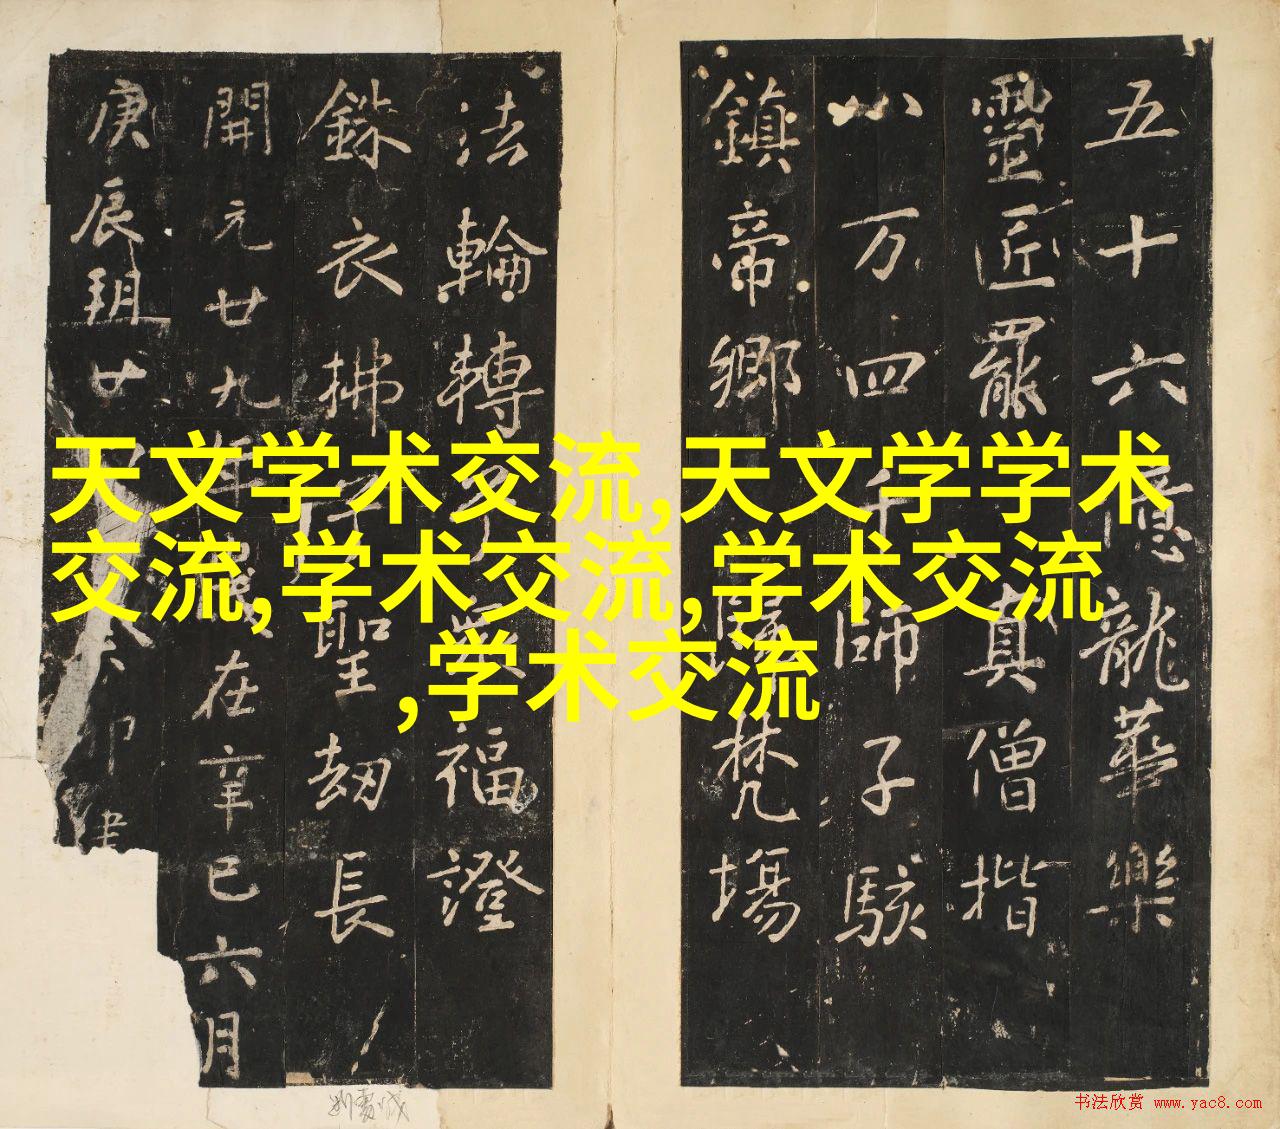 五十六億龍華樂
靈匠罷真僧揩
八万四千師子駭
鎮帝鄉梵場
法輪轉福證
銖衣拂聖劫長
開元廿九年歲在辛巳六月
庚辰朔廿卯建
天文学术交流,天文学学术
交流,学术交流,学术交流
,学术交流
书法欣赏 www.yac8.com